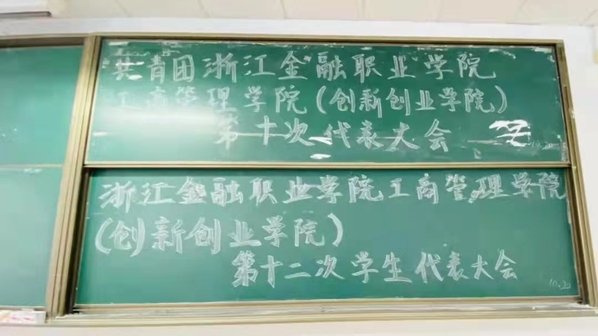 共青团浙江金融职业学院
工商管理学院(创新创业学院)
第十次代表大会
浙江金融职业学院工商管理学院
(创新创业学院)
第十二次学生代表大会